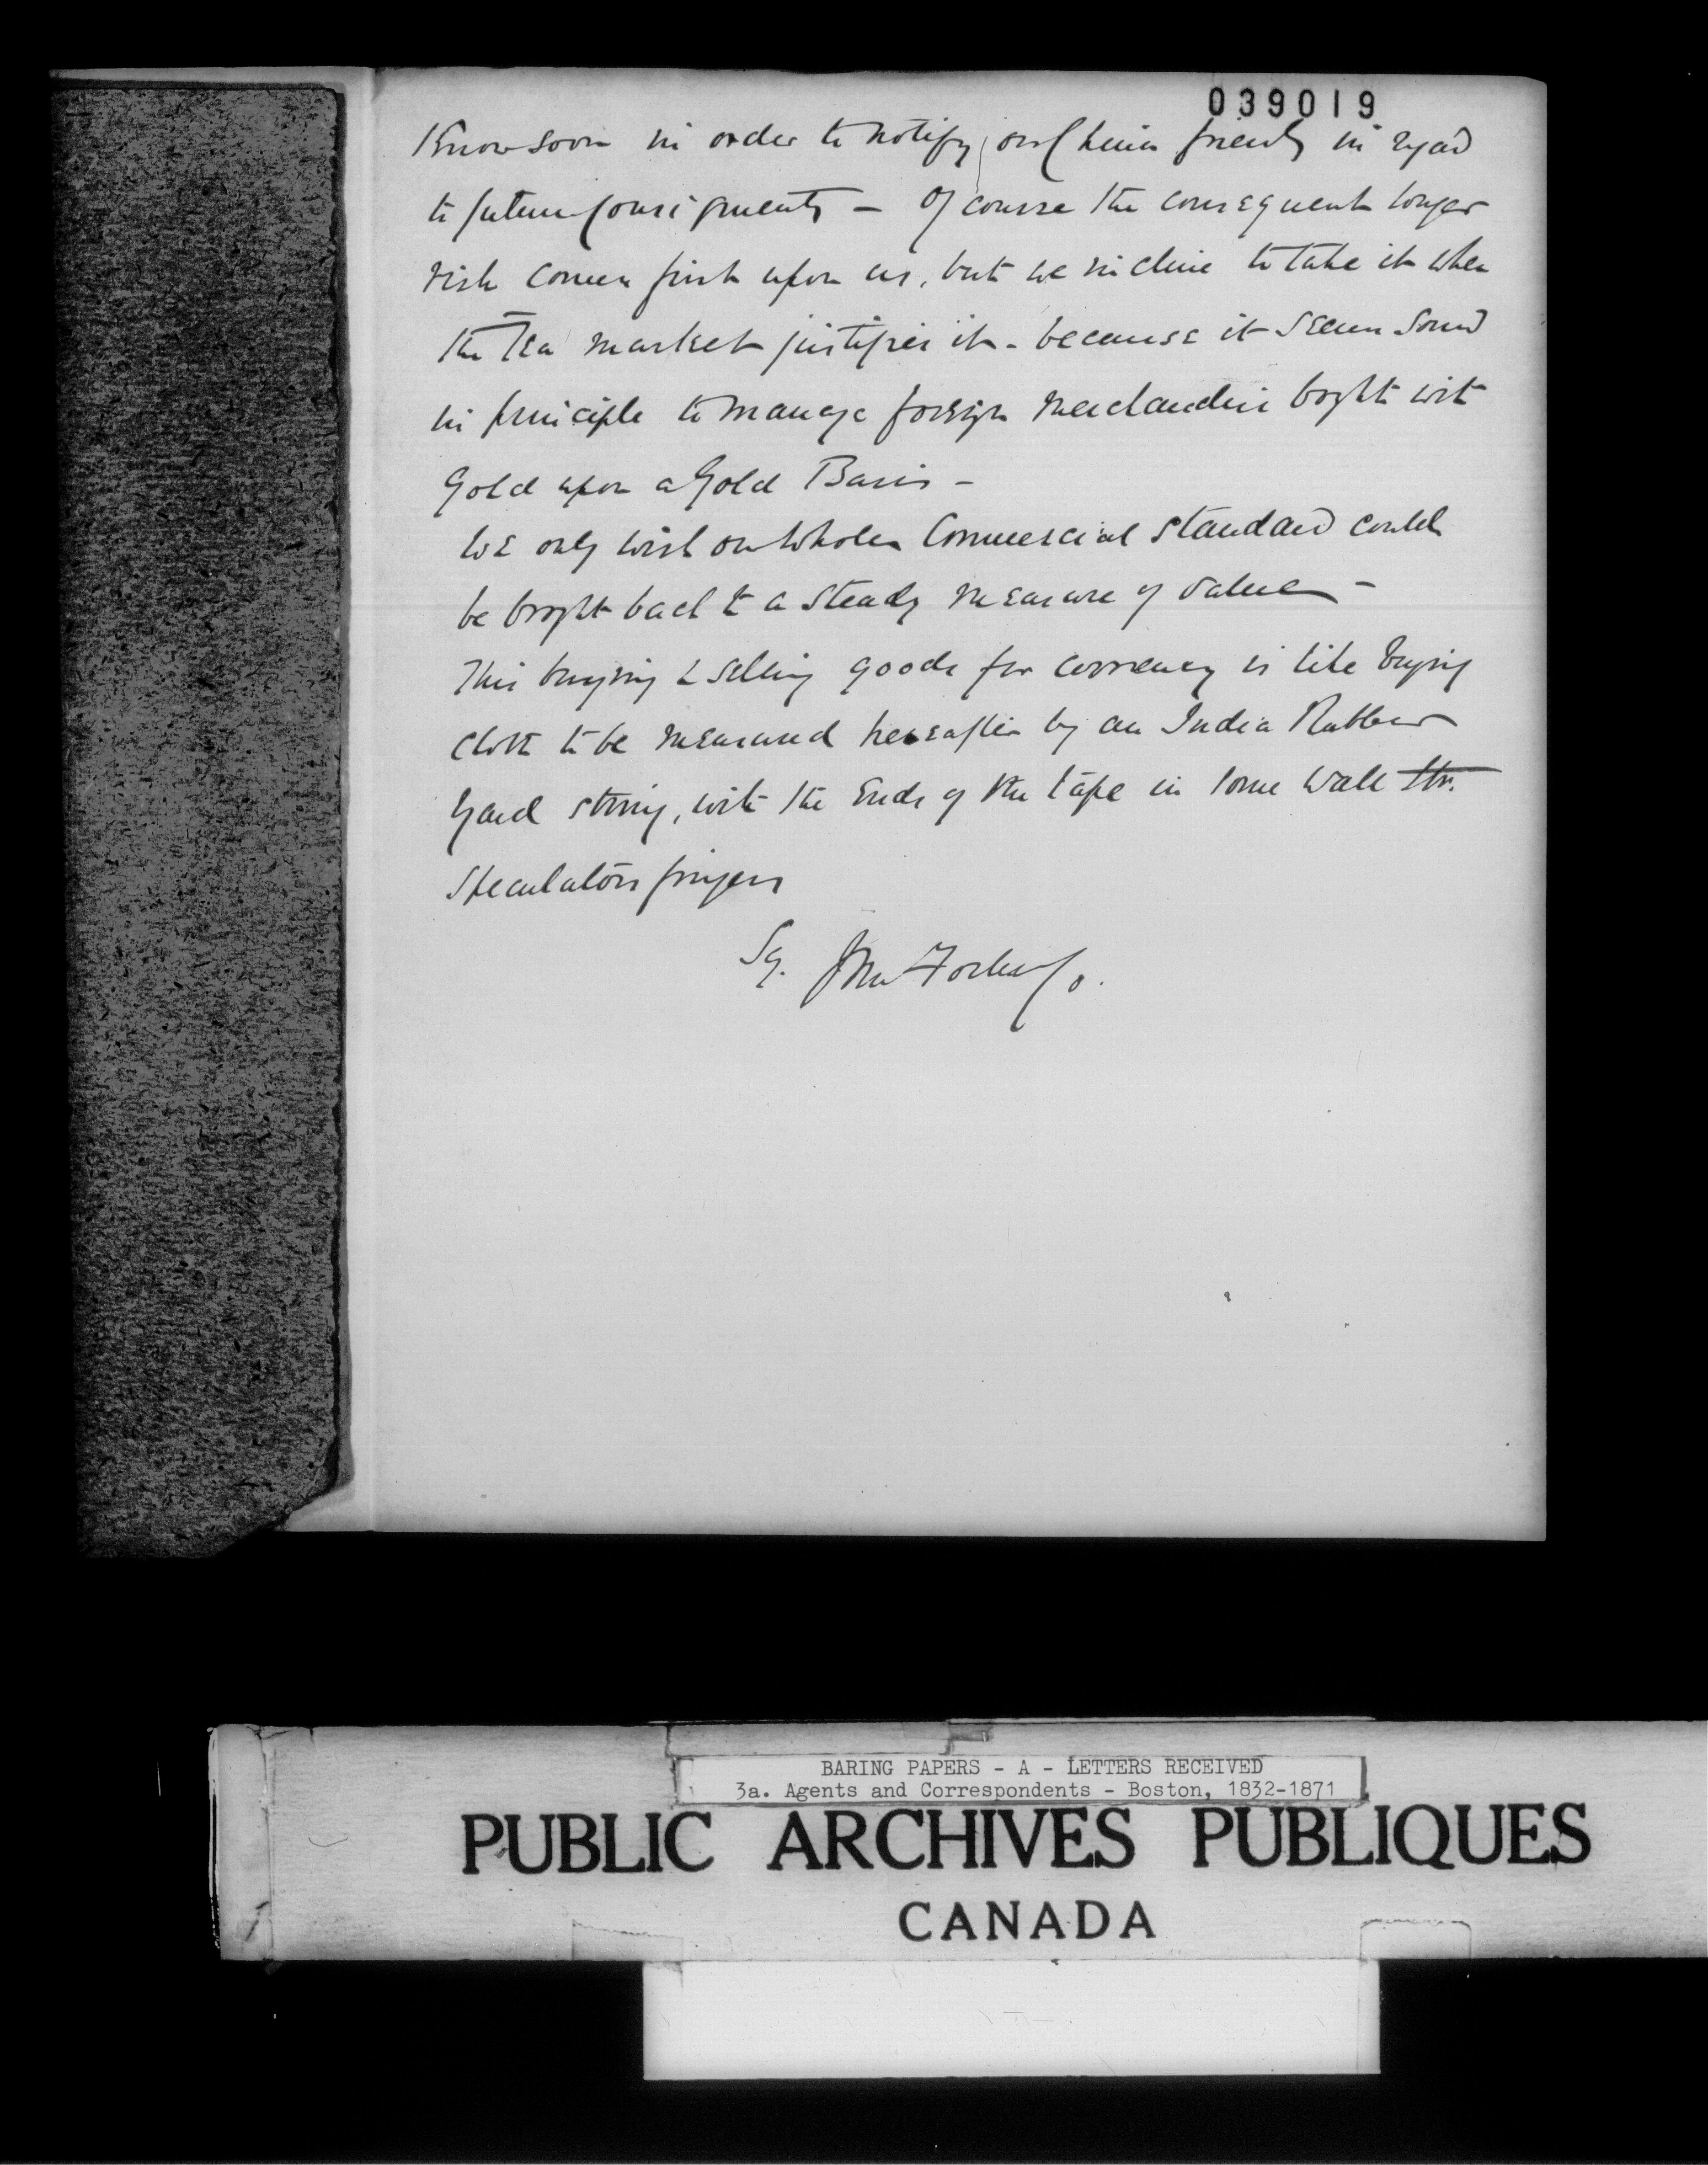 039019
Know soon in order to notify our China friends in regard
to future Consignments – Of course the consequent longer
risk comes first upon us, but we incline to take it when
the Tea market justifies it – because it seems sound
in principle to manage foreign merchandise boght with
Gold upon a Gold Basis –
We only wish our whole Commercial standard could
be broght back to a steady measure of value –
This buying & selling goods for currency is like buying
cloth to be measured hereafter by an India Rubber
Yard string, with the Ends of the tape in some Wall Str.
Speculators fingers
Sg. Jno M Forbes Co.
BARING PAPERS - A - LETTERS RECEIVED
3a. Agents and Correspondents - Boston, 1832-1871
PUBLIC ARCHIVES PUBLIQUES
CANADA